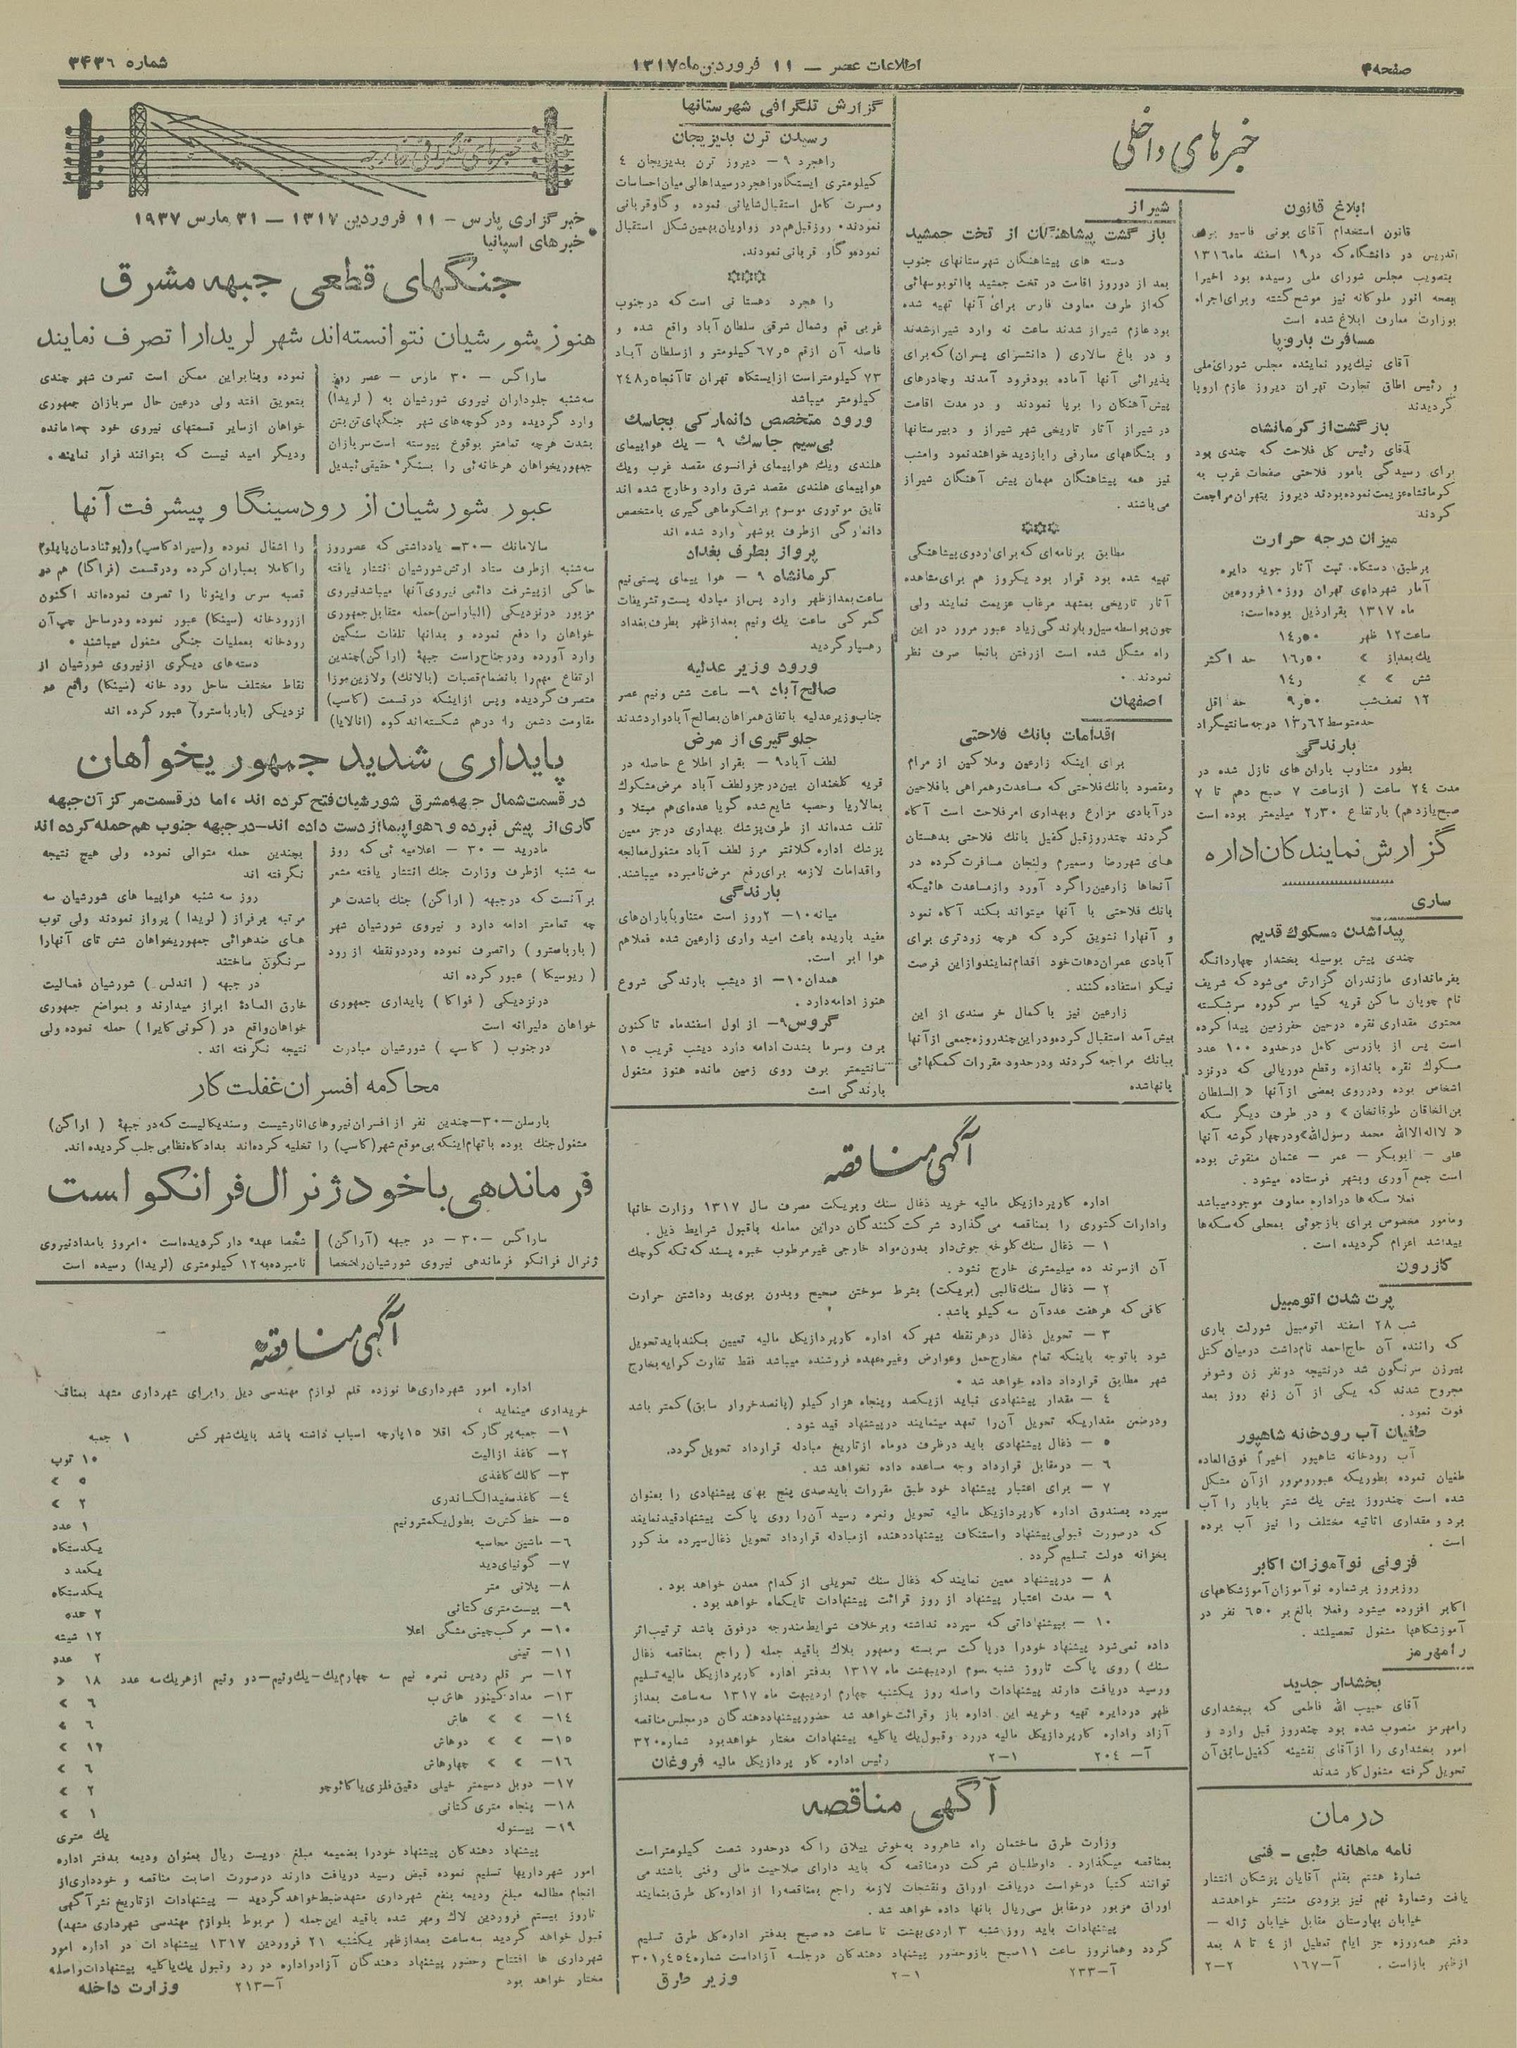 صفحه ۴
اطلاعات عصر — ۱۱ فروردین ماه ۱۳۱۷
شماره ۳۴۳۶
خبرهای داخلی
ابلاغ قانون
قانون استخدام آقای بونی فاسیو برای
تدریس در دانشگاه که در ۱۹ اسفند ماه ۱۳۱۶
بتصویب مجلس شورای ملی رسیده بود اخیرا
بصحه انور ملوکانه نیز موشح گشته و برای اجراء
بوزارت معارف ابلاغ شده است
مسافرت باروپا
آقای نیک‌پور نماینده مجلس شورای ملی
و رئیس اطاق تجارت تهران دیروز عازم اروپا
گردیدند
بازگشت از کرمانشاه
آقای رئیس کل فلاحت که چندی بود
برای رسیدگی بامور فلاحتی صفحات غرب به
کرمانشاه عزیمت نموده بودند دیروز بتهران مراجعت
کردند
میزان درجه حرارت
برطبق دستگاه ثبت آثار جویه دایره
آمار شهرداری تهران روز ۱۰ فروردین
ماه ۱۳۱۷ بقرار ذیل بوده است:
ساعت ۱۲ ظهر ۱۴ر۵۰
یک بعد از » ۱۶ر۵۰ حد اکثر
شش » » ۱۴ر
۱۲ نصف شب ۹ر۵۰ حد اقل
حد متوسط ۱۳ر۶۲ درجه سانتیگراد
بارندگی
بطور متناوب باران های نازل شده در
مدت ۲۴ ساعت ( از ساعت ۷ صبح دهم تا ۷
صبح یازدهم) بارتفاع ۲ر۳۰ میلیمتر بوده است
گزارش نمایندگان اداره
ساری
پیداشدن مسکوک قدیم
چندی پیش بوسیله بخشدار چهاردانگه
بفرمانداری مازندران گزارش می‌شود که شریف
نام چوپان ساکن قریه کیا سر کوزه سرشکسته
محتوی مقداری نقره درحین حفرزمین پیدا کرده
است پس از بازرسی کامل درحدود ۱۰۰ عدد
مسکوک نقره باندازه وقطع دوریالی که درنزد
اشخاص بوده ودرروی بعضی از آنها « السلطان
بن الخاقان طوقانخان » و در طرف دیگر سکه
« لااله الا الله محمد رسول الله» ودرچهار گوشه آنها
علی — ابوبکر — عمر — عثمان منقوش بوده
است جمع آوری وبشهر فرستاده میشود .
فعلا سکه ها دراداره معارف موجود میباشد
ومامور مخصوص برای بازجوئی بمحلی که سکه‌ها
پیداشد اعزام گردیده است .
کازرون
پرت شدن اتومبیل
شب ۲۸ اسفند اتومبیل شورلت باری
که راننده آن حاج احمد نام داشت درمیان کتل
پیرزن سرنگون شد درنتیجه دونفر زن وشوفر
مجروح شدند که یکی از آن زنها روز بعد
فوت نمود .
طغیان آب رودخانه شاهپور
آب رودخانه شاهپور اخیراً فوق العاده
طغیان نموده بطوریکه عبورومرور از آن مشکل
شده است چندروز پیش یک شتر بابار را آب
برد و مقداری اثاثیه مختلف را نیز آب برده
است .
فزونی نوآموزان اکابر
روزبروز برشماره نوآموزان آموزشگاههای
اکابر افزوده میشود وفعلا بالغ بر ۶۵۰ نفر در
آموزشگاهها مشغول تحصیلند .
رامهرمز
بخشدار جدید
آقای حبیب الله فاطمی که ببخشداری
رامهرمز منصوب شده بود چندروز قبل وارد و
امور بخشداری را از آقای نفثیئه کفیل سابق آن
تحویل گرفته مشغول کار شدند
درمان
نامه ماهانه طبی — فنی
شمارهٔ هشتم بقلم آقایان پزشکان انتشار
یافت وشمارهٔ نهم نیز بزودی منتشر خواهدشد
خیابان بهارستان مقابل خیابان ژاله —
دفتر همه روزه جز ایام تعطیل از ۴ تا ۸ بعد
ازظهر بازاست . آ—۱۶۷ ۲—۲
شیراز
بازگشت پیشاهنگان از تخت جمشید
دسته های پیشاهنگان شهرستانهای جنوب
بعد از دوروز اقامت در تخت جمشید با اتوبوسهائی
که از طرف معارف فارس برای آنها تهیه شده
بود عازم شیراز شدند ساعت نه وارد شیراز شدند
و در باغ سالاری ( دانشسرای پسران) که برای
پذیرائی آنها آماده بود فرود آمدند وچادرهای
پیش آهنگان را برپا نمودند و در مدت اقامت
در شیراز آثار تاریخی شهر شیراز و دبیرستانها
و بنگاههای معارفی را بازدید خواهند نمود وامشب
نیز همه پیشاهنگان مهمان پیش آهنگان شیراز
می باشند .
مطابق برنامه‌ای که برای اردوی پیشاهنگی
تهیه شده بود قرار بود یکروز هم برای مشاهده
آثار تاریخی بمشهد مرغاب عزیمت نمایند ولی
چون بواسطه سیل وبارندگی زیاد عبور مرور در این
راه مشکل شده است ازرفتن بانجا صرف نظر
نمودند .
اصفهان
اقدامات بانک فلاحتی
برای اینکه زارعین وملاکین از مرام
ومقصود بانک فلاحتی که مساعدت وهمراهی بافلاحین
درآبادی مزارع وبهداری امرفلاحت است آگاه
گردند چندروز قبل کفیل بانک فلاحتی بدهستان
های شهررضا وسمیرم ولنجان مسافرت کرده در
آنجاها زارعین را گرد آورد واز مساعدت هائیکه
بانک فلاحتی با آنها میتواند بکند آگاه نمود
و آنهارا تشویق کرد که هرچه زودتری برای
آبادی عمران دهات خود اقدام نمایند و از این فرصت
نیکو استفاده کنند .
زارعین نیز باکمال خرسندی از این
پیش آمد استقبال کرده ودراین چندروزه جمعی از آنها
ببانک مراجعه کردند ودرحدود مقررات کمکهائی
بانها شده
گزارش تلگرافی شهرستانها
رسیدن ترن بدیزیجان
راهجرد ۹ — دیروز ترن بدیزیجان ۴
کیلومتری ایستگاه راهجرد رسید اهالی میان احساسات
ومسرت کامل استقبال شایانی نموده وگاوقربانی
نمودند . روز قبل هم در زواریان بهمین شکل استقبال
نموده وگاو قربانی نمودند .
راهجرد دهستانی است که درجنوب
غربی قم وشمال شرقی سلطان آباد واقع شده و
فاصله آن ازقم ۶۷ر۵ کیلومتر و ازسلطان آباد
۷۳ کیلومتر است از ایستگاه تهران تا آنجا ۲۴۸ر۵
کیلومتر میباشد
ورود متخصص دانمارکی بجاسک
بی سیم جاسک ۹ — یک هواپیمای
هلندی ویک هواپیمای فرانسوی مقصد غرب ویک
هواپیمای هلندی مقصد شرق وارد وخارج شده اند
قایق موتوری موسوم براشکو ماهی گیری با متخصص
دانمارکی ازطرف بوشهر وارد شده اند
پرواز بطرف بغداد
کرمانشاه ۹ — هوا پیمای پستی نیم
ساعت بعدازظهر وارد پس از مبادله پست وتشریفات
گمرکی ساعت یک ونیم بعدازظهر بطرف بغداد
رهسپار گردید
ورود وزیر عدلیه
صالح آباد ۹— ساعت شش ونیم عصر
جناب وزیر عدلیه باتفاق همراهان بصالح آباد وارد شدند
جلوگیری از مرض
لطف آباد ۹ — بقرار اطلاع حاصله در
قریه کلخندان بین درجز ولطف آباد مرض مشکوک
بمالاریا وحصبه شایع شده گویا عده‌ای هم مبتلا و
تلف شده‌اند از طرف پزشک بهداری درجز معین
پزشک اداره کلانتر مرز لطف آباد مشغول معالجه
واقدامات لازمه برای رفع مرض نامبرده میباشند.
بارندگی
میانه ۱۰— ۲ روز است متناوباً باران‌های
مفید باریده باعث امید واری زارعین شده فعلا هم
هوا ابر است .
همدان ۱۰— از دیشب بارندگی شروع
هنوز ادامه دارد .
گروس ۹— از اول اسفندماه تاکنون
برف وسرما بشدت ادامه دارد دیشب قریب ۱۵
سانتیمتر برف روی زمین مانده هنوز مشغول
بارندگی است
آگهی مناقصه
اداره کارپردازیکل مالیه خرید ذغال سنک وبریکت مصرف سال ۱۳۱۷ وزارت خانها
وادارات کشوری را بمناقصه می گذارد شرکت کنندگان دراین معامله باقبول شرایط ذیل .
۱ — ذغال سنک کلوخه جوش دار بدون مواد خارجی غیرمرطوب خبره پسند که تکه کوچک
آن ازسرند ده میلیمتری خارج نشود .
۲ — ذغال سنک قالبی (بریکت) بشرط سوختن صحیح وبدون بوی بد وداشتن حرارت
کافی که هرهفت عددآن سه کیلو باشد .
۳ — تحویل ذغال درهرنقطه شهر که اداره کارپردازیکل مالیه تعیین بکند باید تحویل
شود باتوجه باینکه تمام مخارج حمل وعوارض وغیره بعهده فروشنده میباشد فقط تفاوت کرایه بخارج
شهر مطابق قرارداد داده خواهد شد .
۴ — مقدار پیشنهادی نباید ازیکصد وپنجاه هزار کیلو (پانصد خروار سابق) کمتر باشد
ودرضمن مقداریکه تحویل آن را تعهد مینمایند درپیشنهاد قید شود .
۵ — ذغال پیشنهادی باید درظرف دوماه ازتاریخ مبادله قرارداد تحویل گردد.
۶ — درمقابل قرارداد وجه مساعده داده نخواهد شد .
۷ — برای اعتبار پیشنهاد خود طبق مقررات باید صدی پنج بهای پیشنهادی را بعنوان
سپرده بصندوق اداره کارپردازیکل مالیه تحویل ونمره رسید آن را روی پاکت پیشنهاد قید نمایند
که درصورت قبولی پیشنهاد واستنکاف پیشنهاد دهنده ازمبادله قرارداد تحویل ذغال سپرده مذکور
بخزانه دولت تسلیم گردد .
۸ — درپیشنهاد معین نمایند که ذغال سنک تحویلی از کدام معدن خواهد بود .
۹ — مدت اعتبار پیشنهاد از روز قرائت پیشنهادات تایکماه خواهد بود .
۱۰ — بپیشنهاداتی که سپرده نداشته وبرخلاف شرایط مندرجه درفوق باشد ترتیب اثر
داده نمی‌شود پیشنهاد خودرا درپاکت سربسته وممهور بلاک باقید جمله ( راجع بمناقصه ذغال
سنک ) روی پاکت تاروز شنبه سوم اردیبهشت ماه ۱۳۱۷ بدفتر اداره کارپردازیکل مالیه تسلیم
ورسید دریافت دارند پیشنهادات واصله روز یکشنبه چهارم اردیبهشت ماه ۱۳۱۷ سه ساعت بعداز
ظهر دردایره تهیه وخرید این اداره باز وقرائت خواهد شد حضور پیشنهاد دهندگان درمجلس مناقصه
آزاد واداره کارپردازیکل مالیه دررد وقبول یک یاکلیه پیشنهادات مختار خواهد بود شماره ۳۲۰
آ— ۲۰۴ ۱—۲ رئیس اداره کار پردازیکل مالیه فروغان
آگهی مناقصه
وزارت طرق ساختمان راه شاهرود به خوش ییلاق را که درحدود شصت کیلومتر است
بمناقصه میگذارد . داوطلبان شرکت درمناقصه که باید دارای صلاحیت مالی وفنی باشند می
توانند کتباً درخواست دریافت اوراق ونقشجات لازمه راجع بمناقصه را از اداره کل طرق بنمایند
اوراق مزبور درمقابل سی ریال بانها داده خواهد شد .
پیشنهادات باید روز شنبه ۳ اردی بهشت تا ساعت ده صبح بدفتر اداره کل طرق تسلیم
گردد وهمانروز ساعت ۱۱ صبح باز وحضور پیشنهاد دهندگان درجلسه آزاد است شماره ۳۰۱ر۴۵۴
آ—۲۳۳ ۱—۲ وزیر طرق
خبرهای تلگرافی خارجه
خبرگزاری پارس — ۱۱ فروردین ۱۳۱۷ — ۳۱ مارس ۱۹۳۷
خبرهای اسپانیا
جنگهای قطعی جبهه مشرق
هنوز شورشیان نتوانسته‌اند شهر لریدارا تصرف نمایند
ساراگس — ۳۰ مارس — عصر روز
سه شنبه جلوداران نیروی شورشیان به ( لریدا)
وارد گردیده ودر کوچه‌های شهر جنگهای تن بتن
بشدت هرچه تمامتر بوقوع پیوسته است سربازان
جمهوریخواهان هرخانه‌ئی را بسنگر حقیقی تبدیل
نموده وبنابراین ممکن است تصرف شهر چندی
بتعویق افتد ولی درعین حال سربازان جمهوری
خواهان ازسایر قسمتهای نیروی خود جدا مانده
ودیگر امید نیست که بتوانند فرار نمایند .
عبور شورشیان از رودسینگا و پیشرفت آنها
سالامانک —۳۰— یادداشتی که عصرروز
سه شنبه ازطرف ستاد ارتش شورشیان انتشار یافته
حاکی ازپیشرفت دائمی نیروی آنها میباشد نیروی
مزبور درنزدیکی (الباراسن) حمله متقابل جمهوری
خواهان را دفع نموده و بدانها تلفات سنگین
وارد آورده ودرجناح راست جبهه (اراگن) چندین
ارتفاع مهم را بانضمام قصبات (بالانک) ولازین موزا
متصرف گردیده وپس ازاینکه درقسمت (کاسپ)
مقاومت دشمن را درهم شکسته‌اند کوه (اتالایا)
را اشغال نموده و(سیرادکاسپ) و(پوئنادسان پاپلو)
را کاملا بمباران کرده ودرقسمت (فراگا) هم دو
قصبه سرس واینونا را تصرف نموده‌اند اکنون
ازرودخانه (سینکا) عبور نموده ودرساحل چپ آن
رودخانه بعملیات جنگی مشغول میباشند .
دسته‌های دیگری ازنیروی شورشیان از
نقاط مختلف ساحل رود خانه (سینکا) واقع در
نزدیکی (بارباسترو) عبور کرده اند
پایداری شدید جمهوریخواهان
درقسمت شمال جبهه مشرق شورشیان فتح کرده اند ، اما درقسمت مرکز آن جبهه
کاری از پیش نبرده و ۶ هواپیما از دست داده اند—درجبهه جنوب هم حمله کرده اند
مادرید — ۳۰ — اعلامیه ئی که روز
سه شنبه ازطرف وزارت جنک انتشار یافته مشعر
برآنست که درجبهه ( اراگن) جنک باشدت هر
چه تمامتر ادامه دارد و نیروی شورشیان شهر
( بارباسترو ) راتصرف نموده ودردونقطه از رود
( ریوسیکا ) عبور کرده اند
درنزدیکی ( فواکا ) پایداری جمهوری
خواهان دلیرانه است
درجنوب ( کاسپ ) شورشیان مبادرت
بچندین حمله متوالی نموده ولی هیچ نتیجه
نگرفته اند
روز سه شنبه هواپیما های شورشیان سه
مرتبه برفراز ( لریدا ) پرواز نمودند ولی توپ
های ضدهوائی جمهوریخواهان شش تای آنهارا
سرنگون ساختند
در جبهه ( اندلس ) شورشیان فعالیت
خارق العادهٔ ابراز میدارند و بمواضع جمهوری
خواهان واقع در (کونی کابرا ) حمله نموده ولی
نتیجه نگرفته اند .
محاکمه افسران غفلت کار
بارسلن—۳۰—چندین نفر از افسران نیروهای انارشیست وسندیکالیست که درجبهه ( اراگن)
مشغول جنک بوده باتهام اینکه بی موقع شهر (کاسپ) را تخلیه کرده‌اند بدادگاه نظامی جلب گردیده اند.
فرماندهی باخود ژنرال فرانکو است
ساراگس —۳۰ — در جبهه (آراگن)
ژنرال فرانکو فرماندهی نیروی شورشیان را شخصا
شخصا عهده دار گردیده است . امروز بامداد نیروی
نامبرده به ۱۲ کیلومتری (لریدا) رسیده است
آگهی مناقصه
اداره امور شهرداری‌ها نوزده قلم لوازم مهندسی ذیل را برای شهرداری مشهد بمناقصه
خریداری مینماید ،
۱— جعبه پرگار که اقلا ۱۵ پارچه اسباب داشته باشد بایک شهر کش ۱ جعبه
۲— کاغذ ازالیت ۱۰ توپ
۳— کالک کاغذی ۵ »
۴— کاغذ سفید الکساندری ۲ »
۵— خط کش ت بطول یکمتر ونیم ۱ عدد
۶— ماشین محاسبه یکدستگاه
۷— گونیای دید یکعدد
۸— پلانی متر یکدستگاه
۹— بیست متری کتانی ۲ عدد
۱۰— مرکب چینی مشگی اعلا ۱۲ شیشه
۱۱— تیئی ۲ عدد
۱۲— سر قلم ردیس نمره نیم سه چهارم یک—یک ونیم—دو ونیم ازهریک سه عدد ۱۸ »
۱۳— مداد کینور هاش ب ۶ »
۱۴— » » هاش ۶ »
۱۵— » » دوهاش ۱۲ »
۱۶— » » چهارهاش ۶ »
۱۷— دوبل دسیمتر خیلی دقیق فلزی یا کائوچو ۲ »
۱۸— پنجاه متری کتانی ۱ »
۱۹— پیستوله یک متری
پیشنهاد دهندگان پیشنهاد خودرا بضمیمه مبلغ دویست ریال بعنوان ودیعه بدفتر اداره
امور شهرداریها تسلیم نموده قبض رسید دریافت دارند درصورت اصابت مناقصه و خودداری از
انجام مطالعه مبلغ ودیعه بنفع شهرداری مشهد ضبط خواهد گردید — پیشنهادات ازتاریخ نشر آگهی
تاروز بیستم فروردین لاک ومهر شده باقید این جمله ( مربوط بلوازم مهندسی شهرداری مشهد)
قبول خواهد گردید سه ساعت بعدازظهر یکشنبه ۲۱ فروردین ۱۳۱۷ پیشنهاد ات در اداره امور
شهرداری ها افتتاح وحضور پیشنهاد دهندگان آزاد واداره در رد وقبول یک یاکلیه پیشنهادات واصله
مختار خواهد بود آ—۲۱۳ وزارت داخله